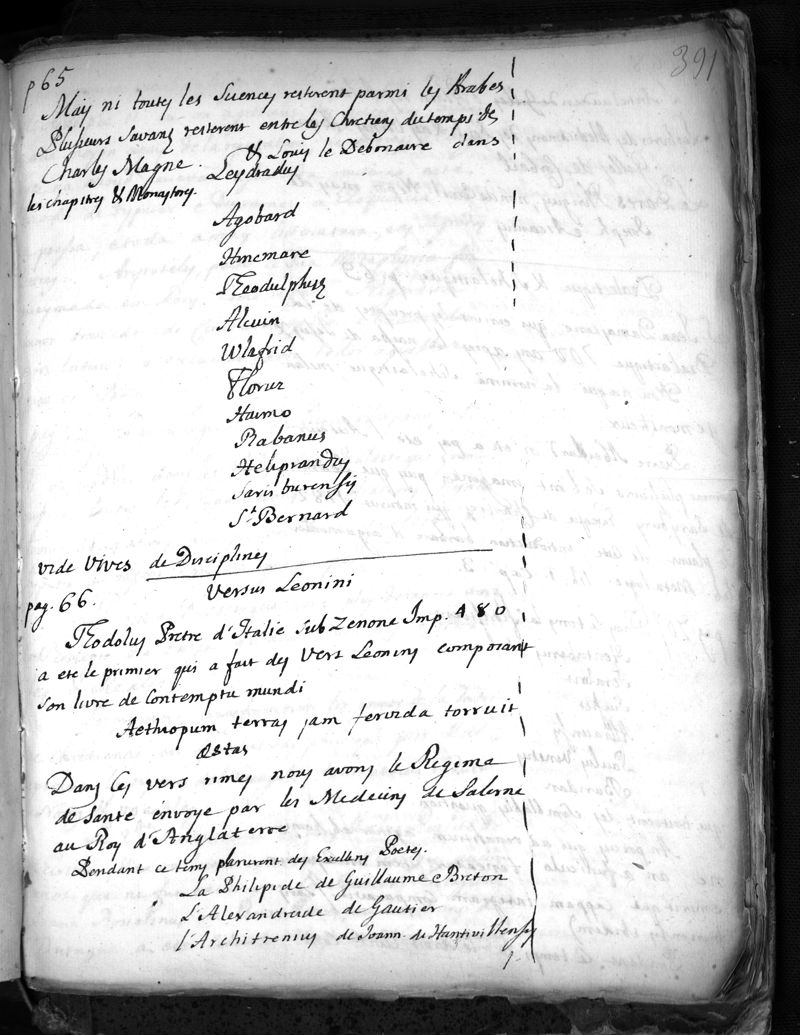 391
p 65
Mais ni toutes les Sciences resterent parmi les Arabes
Plusieurs Savans resterent entre les Chretiens du temps de
Charles Magne. & Louis le Debonaire dans
les chapitres & Monasteres.
Leydradus
Agobard
Hincmare
Theodulphus
Alcuin
Wlafrid
Florus
Haimo
Rabanus
Heliprandus
Sarisburensis
St Bernard
vide Vives de Disciplines
Versus Leonini
pag. 66.
Thodolus Pretre d'Italie sub Zenone Imp. 480
a ete le premier qui a fait des Vers Leonins composant
son livre de Contemptu mundi
Aethiopum terras jam fervida torruit
Æstas
Dans les vers rimes nous avons le Regima
de Sante envoye par les Medecins de Salerne
au Roy d'Anglaterre
Pendant ce tems parurent des Excellens Poetes.
La Philipide de Guillaume Breton
L'Alexandreide de Gautier
l'Architrenius de Joann. de Hantwillensis